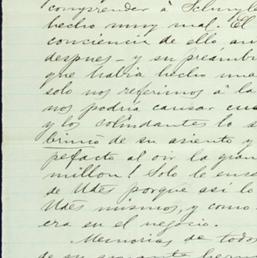 comprender á Schuyle
hecho muy mal. El
conciencia de ello, au
despues — y su preambu
que habia hecho una
solo nos referimos á la
nos podria causar cua
y los colindantes lo s
brincó de su asiento y
pefacto al oir la gran
millon! Solo le ense
de Udes porque asi lo
Udes mismos, y como
era en el negocio.
Memorias de todos
de su amante herm